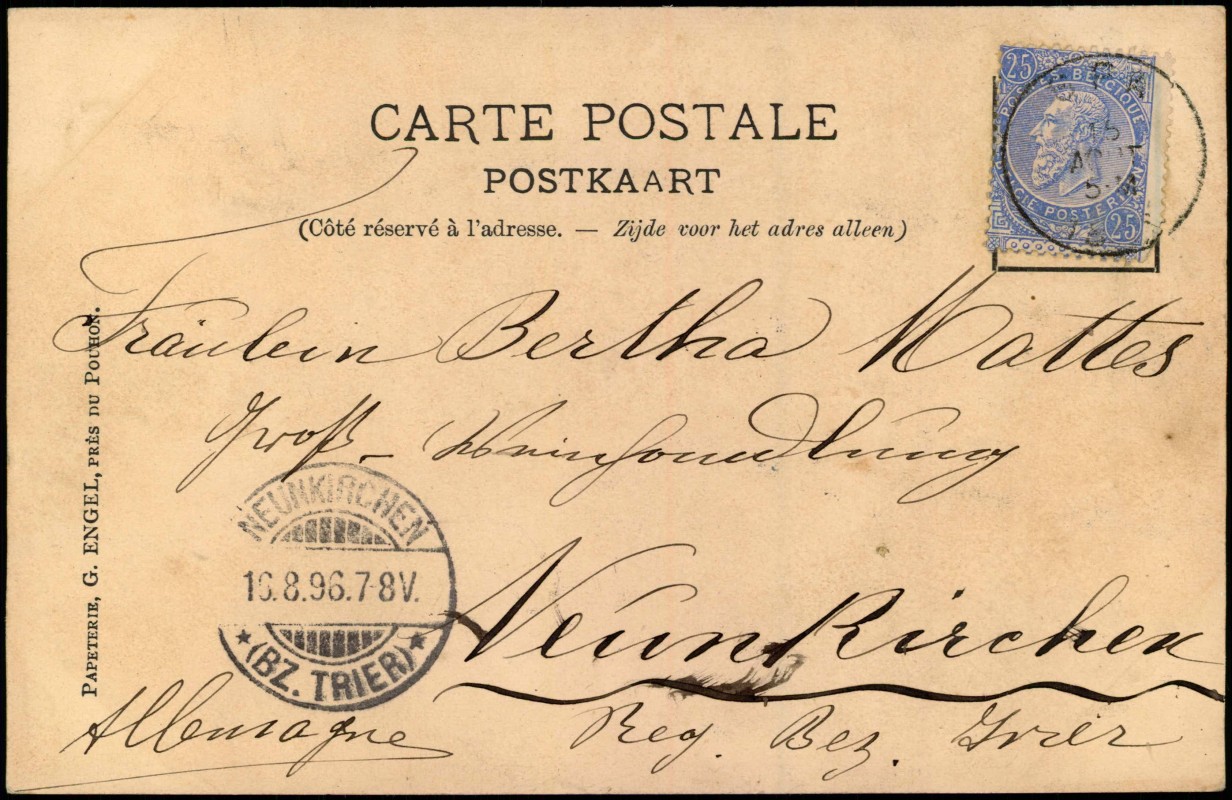 CARTE POSTALE
POSTKAART
(Côté réservé à l'adresse. — Zijde voor het adres alleen)
25 POSTES BELGIQUE
BELGIE POSTERIJEN 25
15
5-
Fräulein Bertha Mattes
Groß- Weinhandlung
Neunkirchen
Reg. Bez. Trier
Allemagne
NEUNKIRCHEN
16.8.96.7-8V.
★ (BZ. TRIER) ★
PAPETERIE, G. ENGEL, PRÈS DU POUHON.